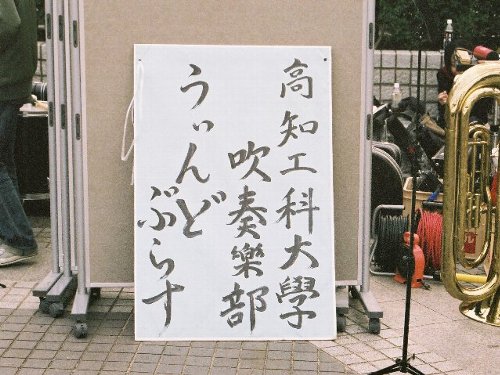 高知工科大學
吹奏樂部
うぃんど
ぶらす